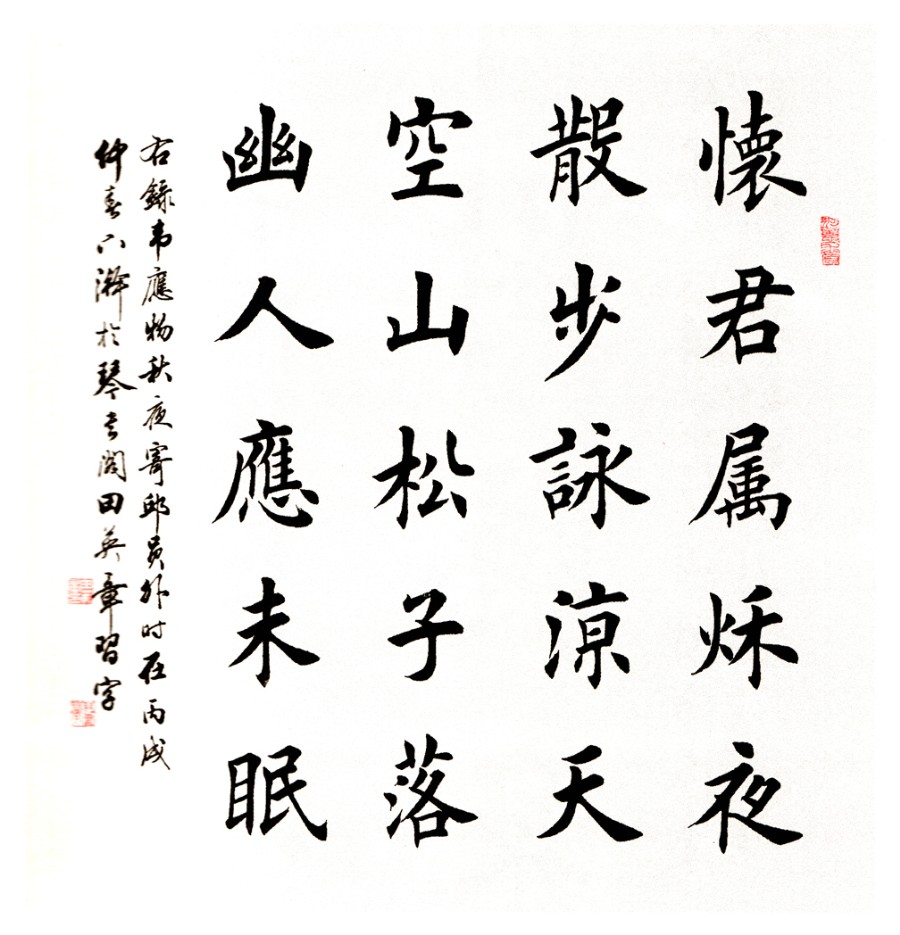 懷君属秌夜
散步詠涼天
空山松子落
幽人應未眠
右錄韦應物秋夜寄邱员外时在丙戌
仲春下澣於琴书阁田英章習字